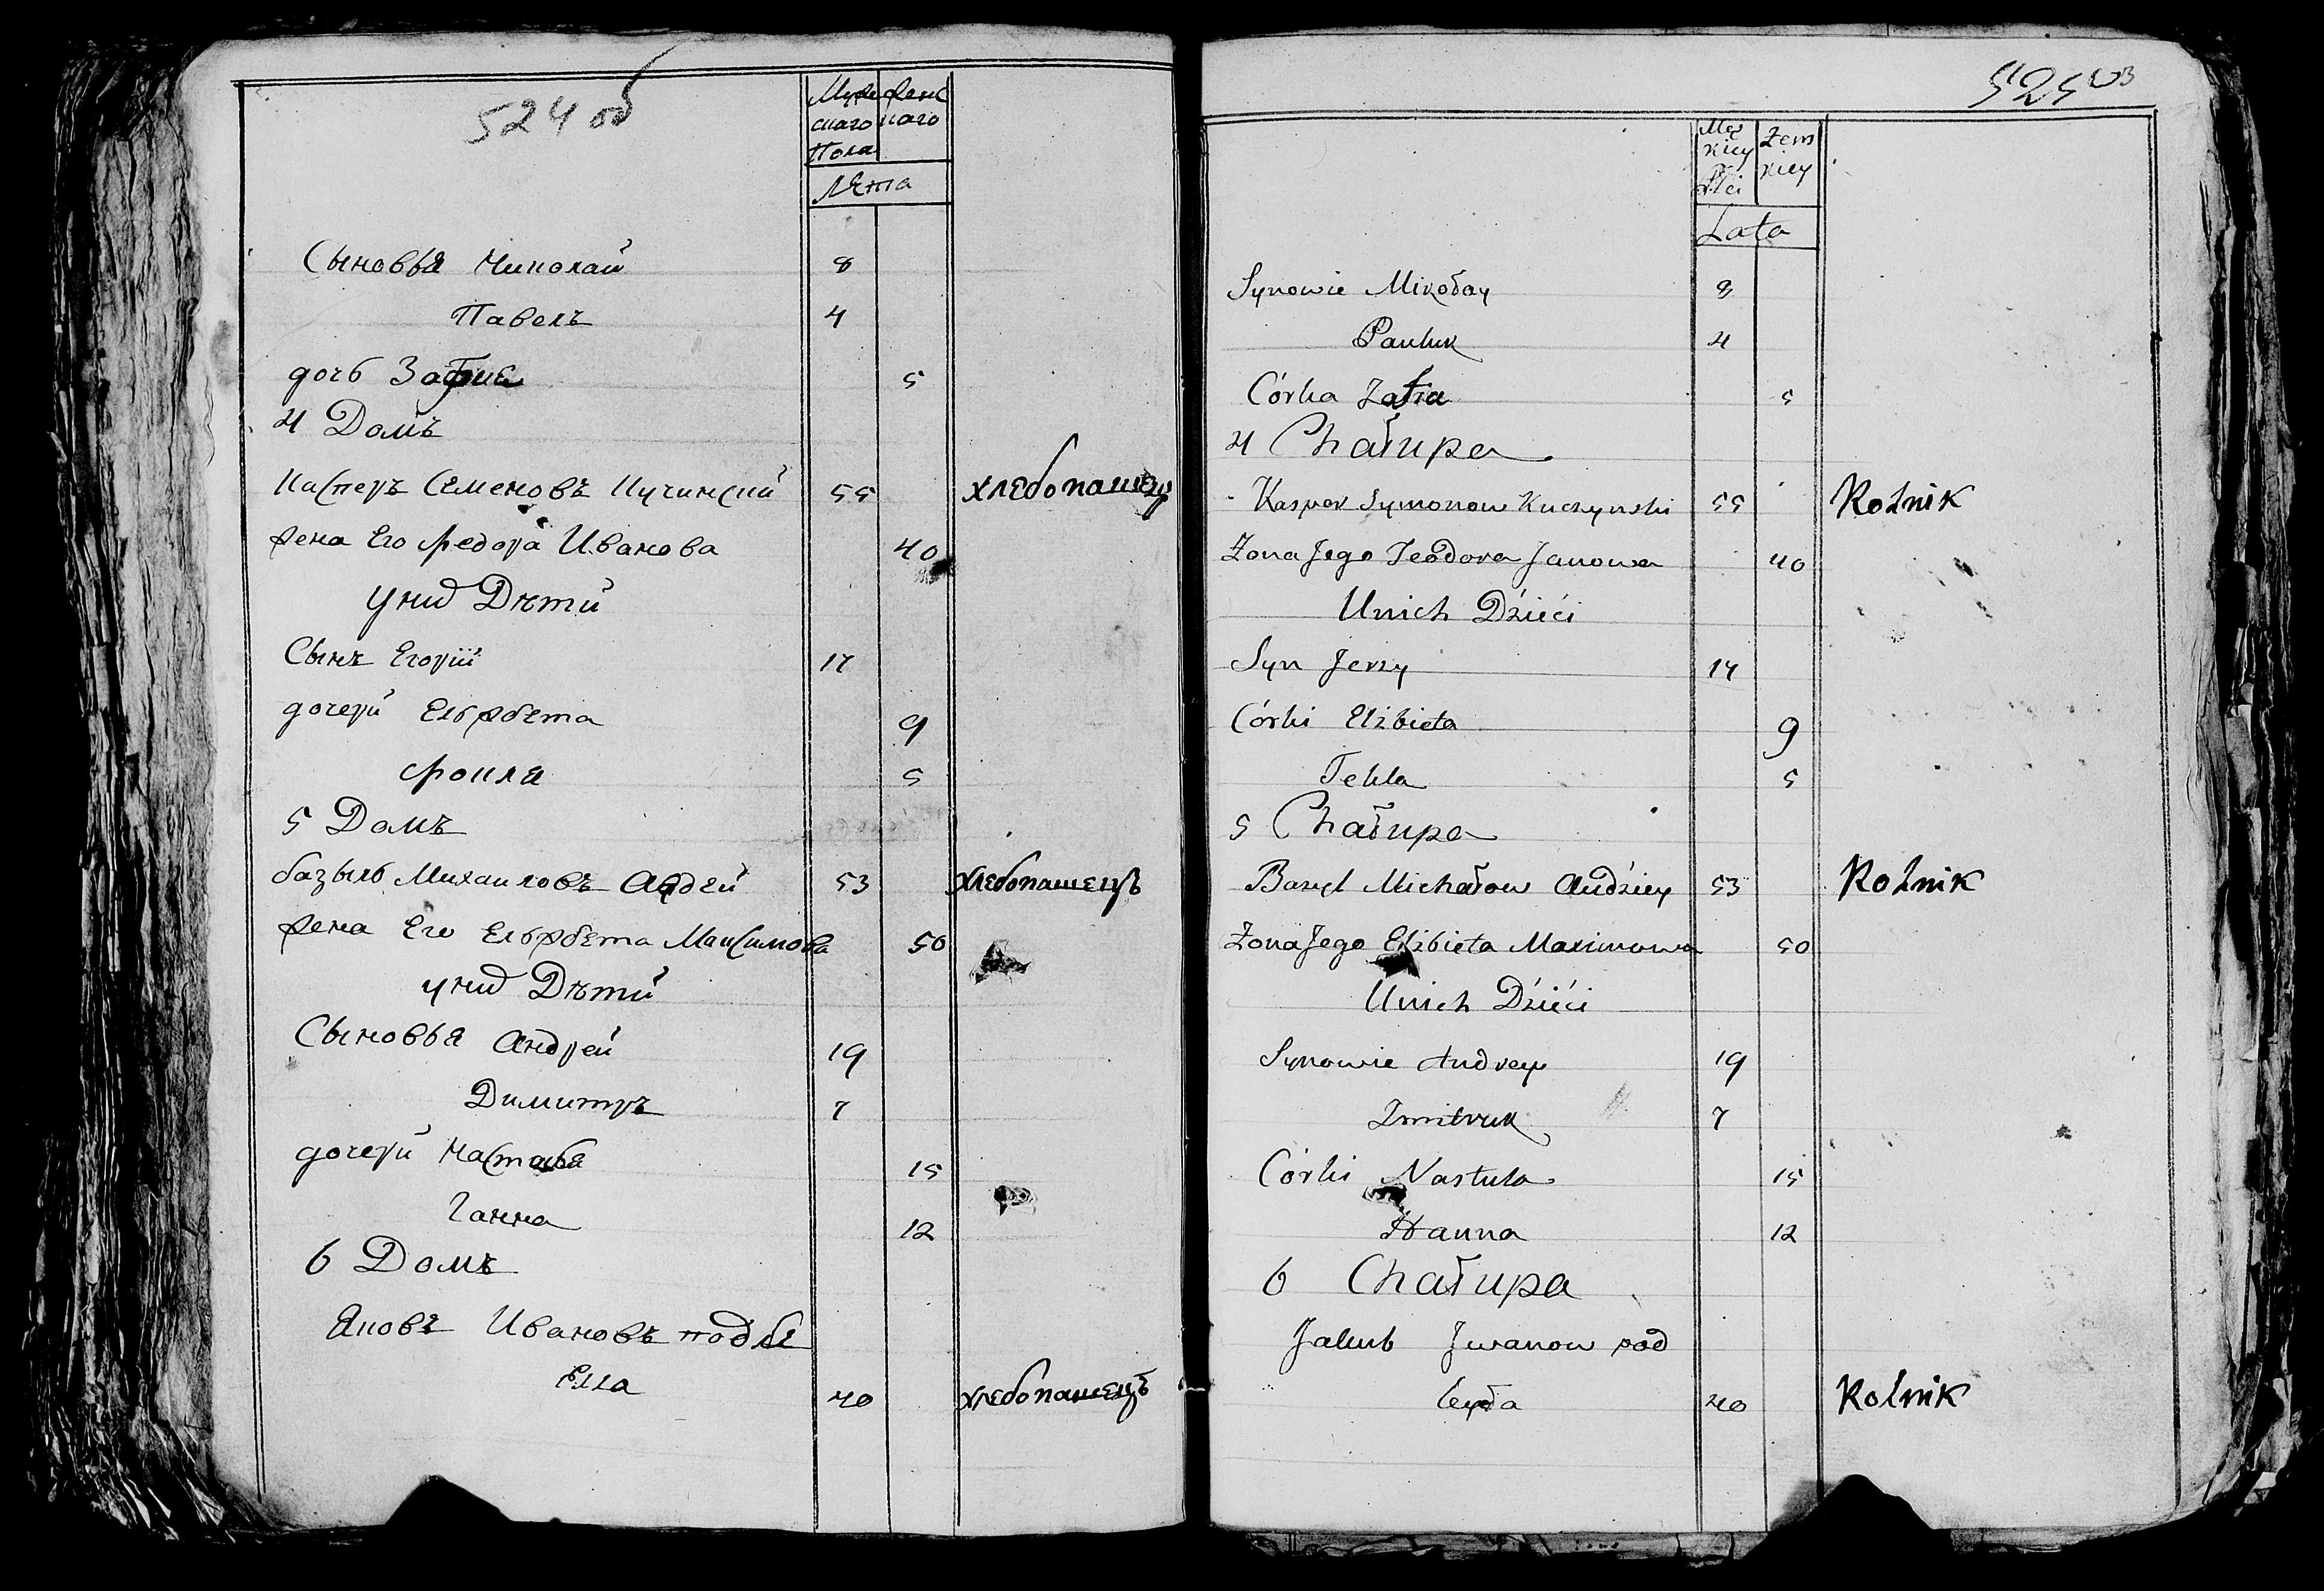 524 об
Муже женс
скаго каго
Пола
Лѣта
Сыновья Николай 8
Павелъ 4
дочь Зофия 5
4 Домъ
Касперъ Семеновъ Кучинский 55 хлебопашецъ
жена Его Федора Иванова 40
у них Дѣти
Сынъ Егорий 17
дочери Ельжбета 9
Фокля 5
5 Домъ
базыль Михаиловъ Авдей 53 хлебопашецъ
жена Его Ельжбета Максимова 50
у них Дѣти
Сыновья Андрей 19
Димитръ 7
дочери Настасья 15
Ганна 12
6 Домъ
Яковъ Ивановъ подбе
Елла 40 хлебопашецъ
525
Męs Żens
kiey kiey
Płci
Lata
Synowie Mikołay 8
Pauluk 4
Córka Zofia 5
4 Chałupa
Kasper Symonow Kuczynski 55 Rolnik
Żona Jego Teodora Janowa 40
U nich Dzieci
Syn Jerzy 17
Córki Elżbieta 9
Tekla 5
5 Chałupa
Bazyl Michałow Audziey 53 Rolnik
Żona Jego Elżbieta Maximowa 50
U nich Dzieci
Synowie Andrey 19
Zmitruk 7
Córki Nastula 15
Hanna 12
6 Chałupa
Jakub Jwanow pod
beyła 40 Rolnik